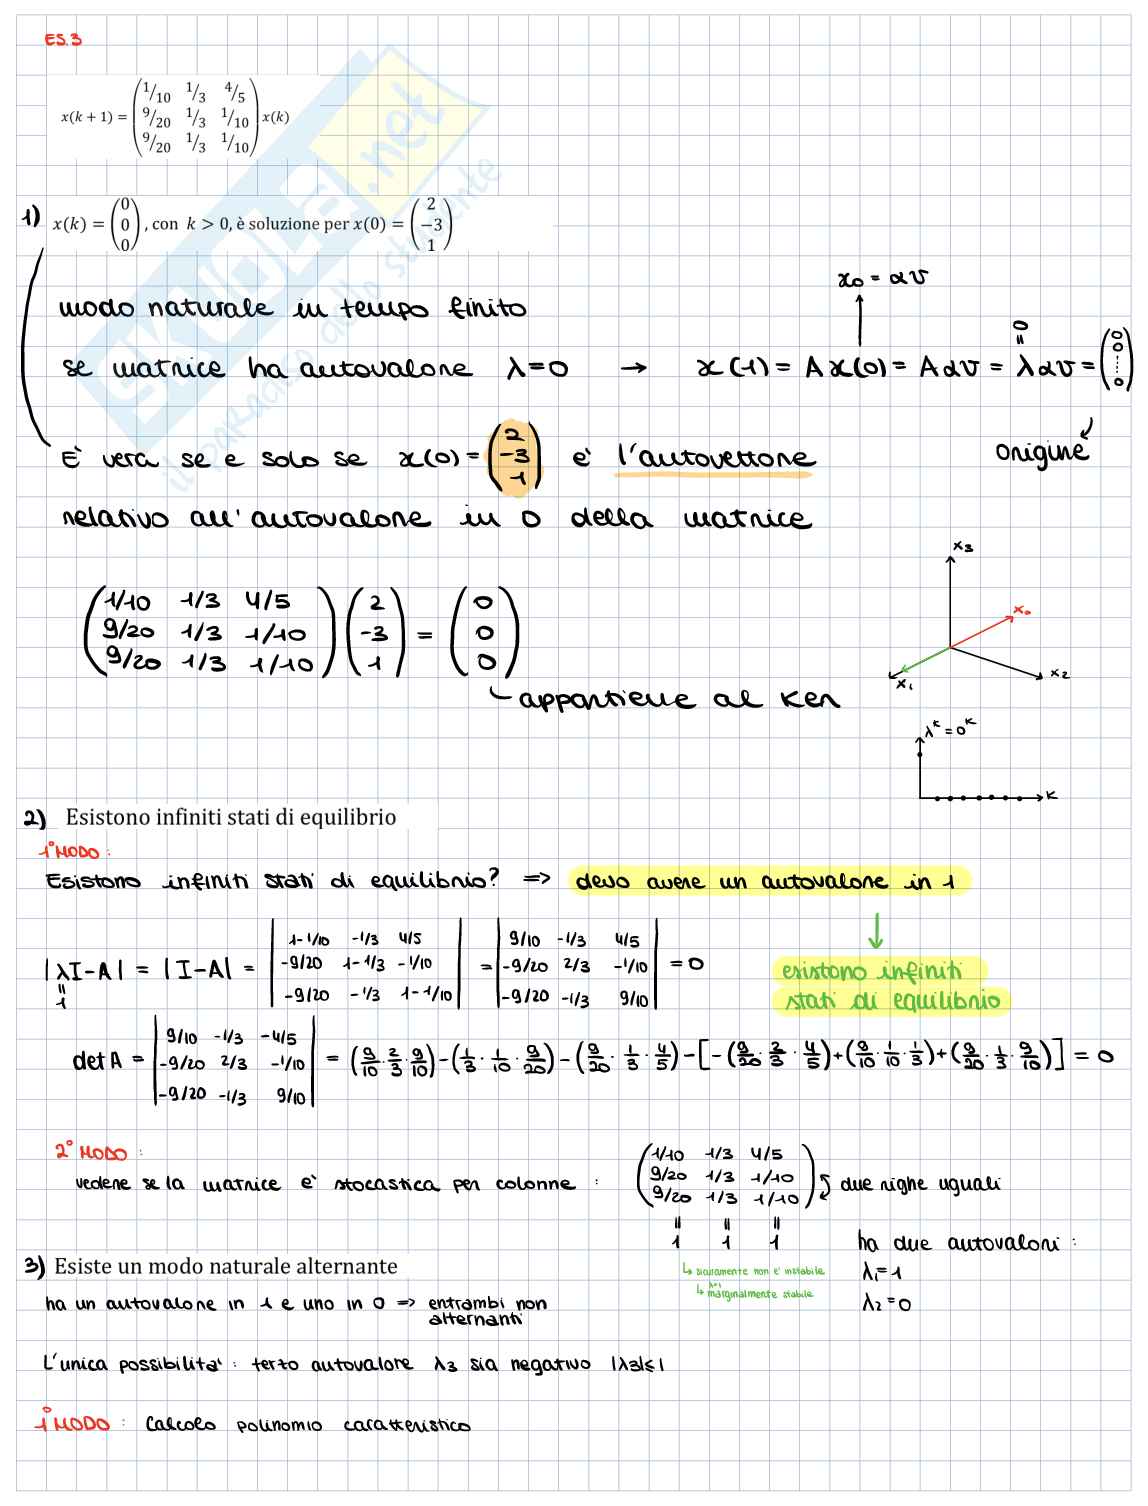 ES.3
x(k + 1) = (1/10 1/3 4/5
9/20 1/3 1/10
9/20 1/3 1/10) x(k)
SKUOLA.net
il paradiso dello studente
1) x(k) = (0 0 0), con k > 0, è soluzione per x(0) = (2 −3 1)
x₀ = αv
modo naturale in tempo finito
se matrice ha autovalore λ=0 → x(1) = Ax(0) = Aαv = λαv = (0 0 ⋮ 0)
=0
origine
E' vera se e solo se x(0) = (2 -3 1) e' l'autovettore
relativo all'autovalore in 0 della matrice
(1/10 1/3 4/5
9/20 1/3 1/10
9/20 1/3 1/10) (2 -3 1) = (0 0 0)
appartiene al ker
x₃
x₀
x₁
x₂
λᵏ = 0ᵏ
k
2) Esistono infiniti stati di equilibrio
1° MODO :
Esistono infiniti stati di equilibrio? => devo avere un autovalore in 1
|λI-A| = |I-A| = |1-1/10 -1/3 4/5
-9/20 1-1/3 -1/10
-9/20 -1/3 1-1/10| = |9/10 -1/3 4/5
-9/20 2/3 -1/10
-9/20 -1/3 9/10| = 0
=
1
esistono infiniti
stati di equilibrio
det A = |9/10 -1/3 -4/5
-9/20 2/3 -1/10
-9/20 -1/3 9/10| = (9/10 · 2/3 · 9/10) - (1/3 · 1/10 · 9/20) - (9/20 · 1/3 · 4/5) - [-(9/20 · 2/3 · 4/5) + (9/10 · 1/10 · 1/3) + (9/20 · 1/3 · 9/10)] = 0
2° MODO :
vedere se la matrice e' stocastica per colonne :
(1/10 1/3 4/5
9/20 1/3 1/10
9/20 1/3 1/10) due righe uguali
= = =
1 1 1
↳ sicuramente non e' instabile
λ=1
↳ marginalmente stabile
ha due autovalori :
λ₁=1
λ₂=0
3) Esiste un modo naturale alternante
ha un autovalore in 1 e uno in 0 => entrambi non
alternanti
L'unica possibilita' : terzo autovalore λ₃ sia negativo |λ₃|≤1
1° MODO : Calcolo polinomio caratteristico